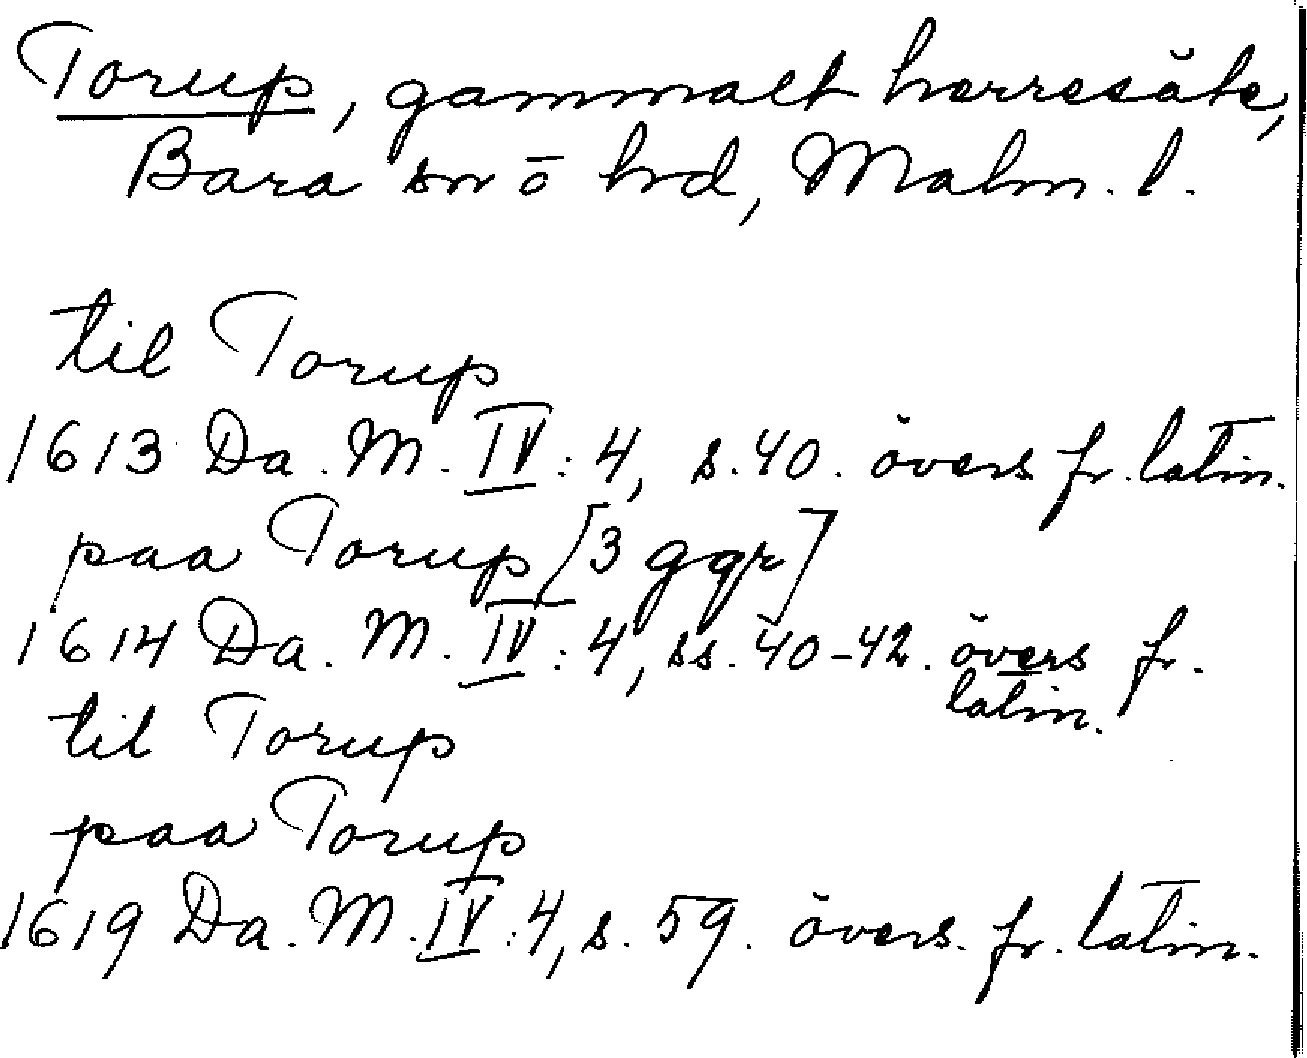 Torup, gammalt herresäte,
Bara sn ō hd, Malm. l.
til Torup
1613 Da. M. IV: 4, s. 40. övers fr. latin.
paa Torup [3 ggr]
1614 Da. M. IV: 4, ss. 40-42. övers fr.
latin.
til Torup
paa Torup
1619 Da. M. IV: 4, s. 59. övers. fr. latin.